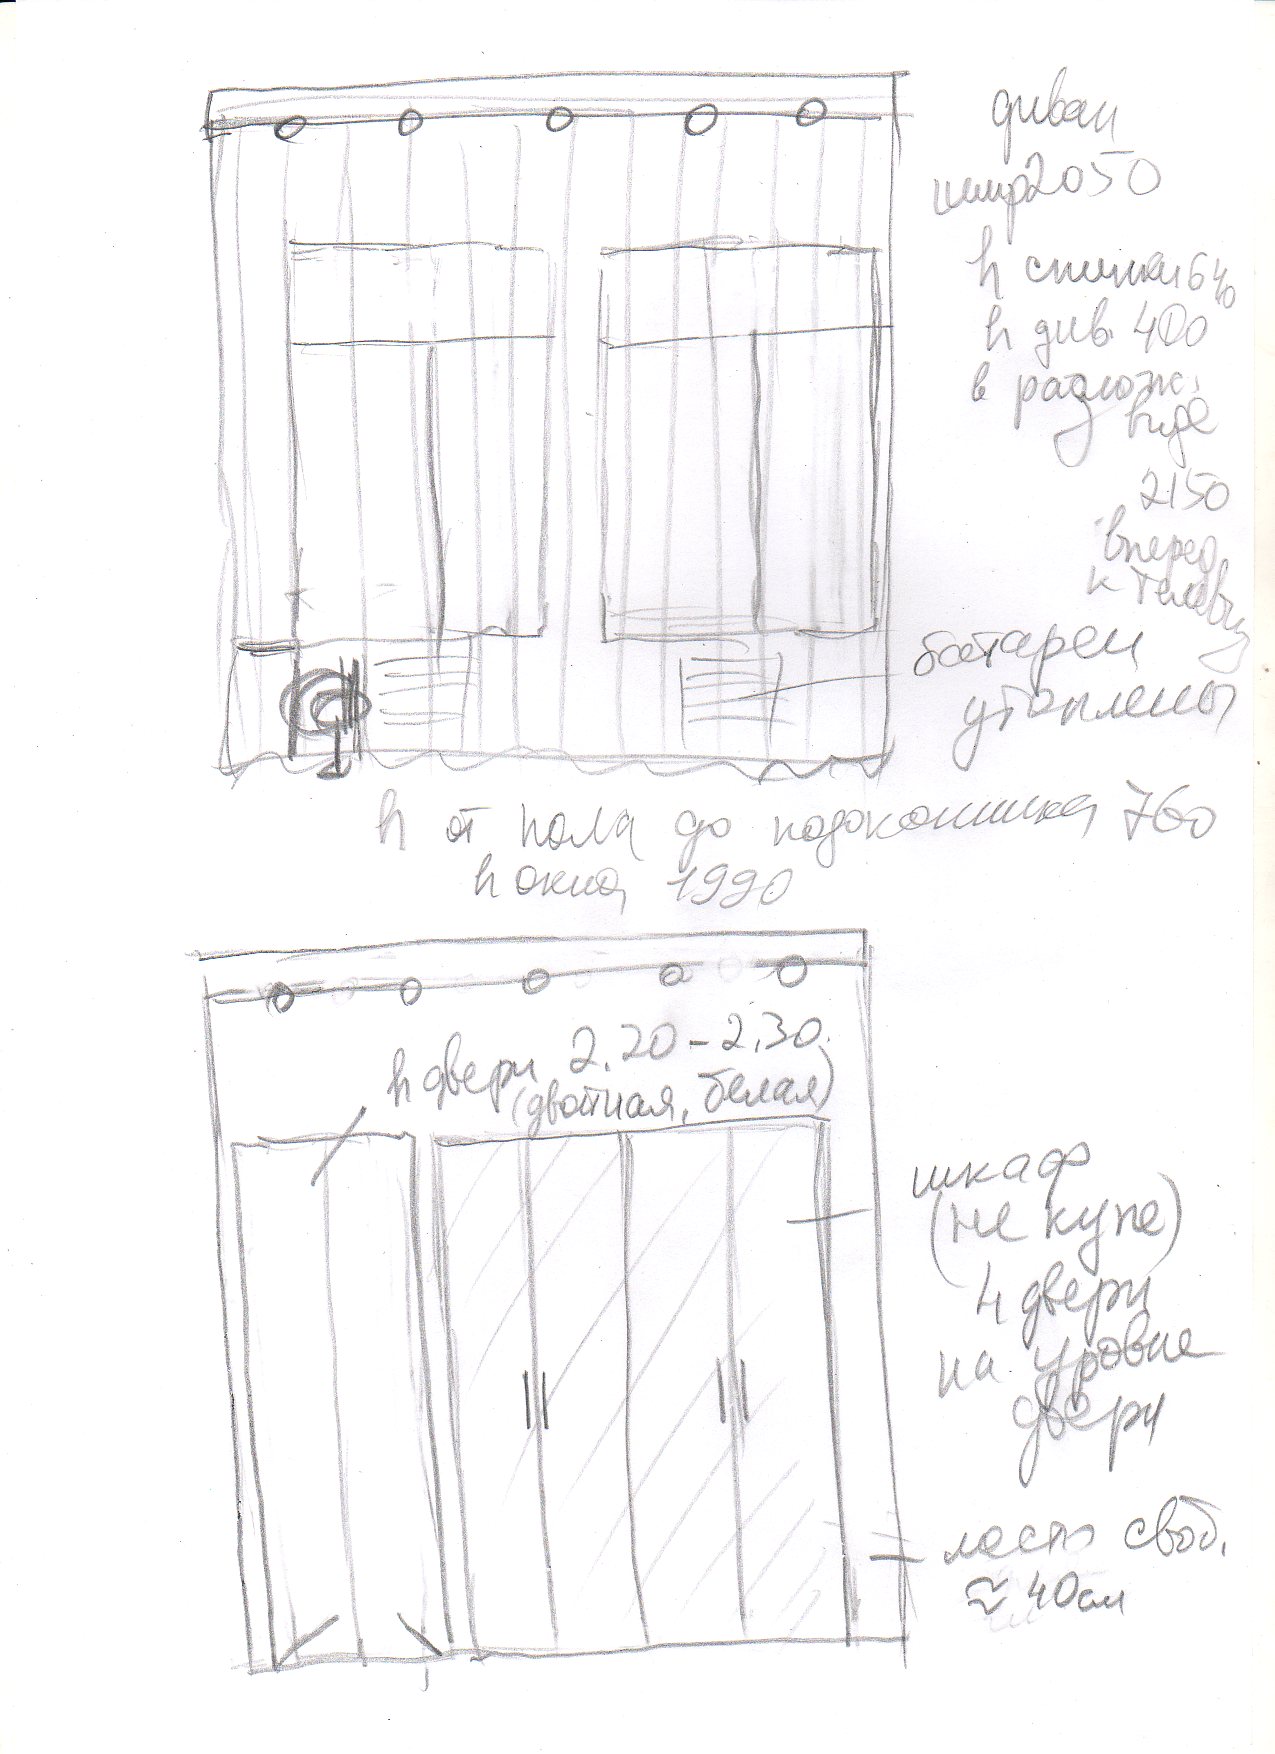 диван
шир 2050
h спинки 640
h див. 400
в разлож.
виде
2150
вперед
к телевиз
батареи
утоплены
h от пола до подоконника 760
h окна 1990
h двери 2.20-2.30.
(двойная, белая)
шкаф
(не купе)
4 двери
на уровне
двери
место своб.
≈ 40см